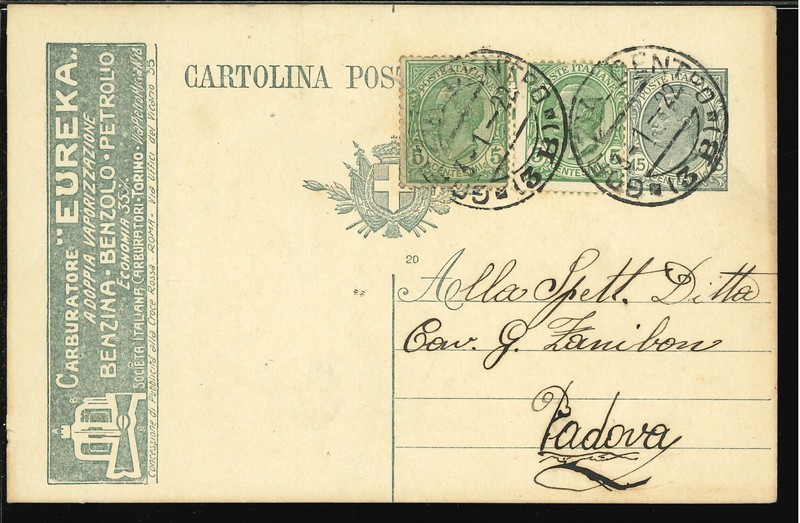 CARBURATORE "EUREKA"
A DOPPIA VAPORIZZAZIONE
BENZINA - BENZOLO - PETROLIO
ECONOMIA 35%
SOCIETÀ ITALIANA CARBURATORI - TORINO -
Concessione di Pubblicità alla Croce Rossa - ROMA - Via Uffici del Vicario 35
8
CARTOLINA POST
POSTE ITALIANE
5 5
CENTES
POSTE ITALIANE
5 5
CENTES
POSTE ITALIANE
15
CENTES
(3 B)
(3 B)
20
Alla Spett. Ditta
Cav. G. Zanibon
Padova